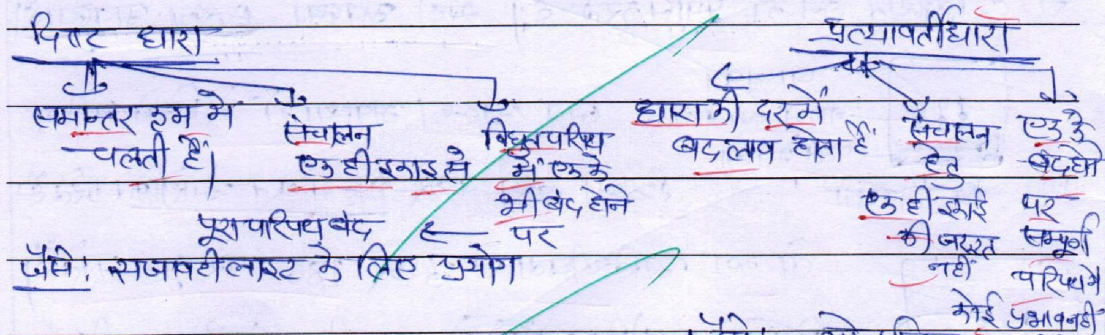 दिष्ट धारा
प्रत्यावर्तीधारा
समान्तर क्रम मे
चलती हैं।
संचालन
एक ही इकाइ से
विधुत परिपथ
में एक के
भी बंद होने
पर
पूरा परिपथ बंद
जैसे: सजावटी लाइट के लिए प्रयोग
धारा की दर में
बदलाव होता हैं
संचालन
हेतु
एक ही इकाई
की जरूरत
नहीं
एक के
बंद होने
पर
सम्पूर्ण
परिपथ मे
कोई प्रभाव नही